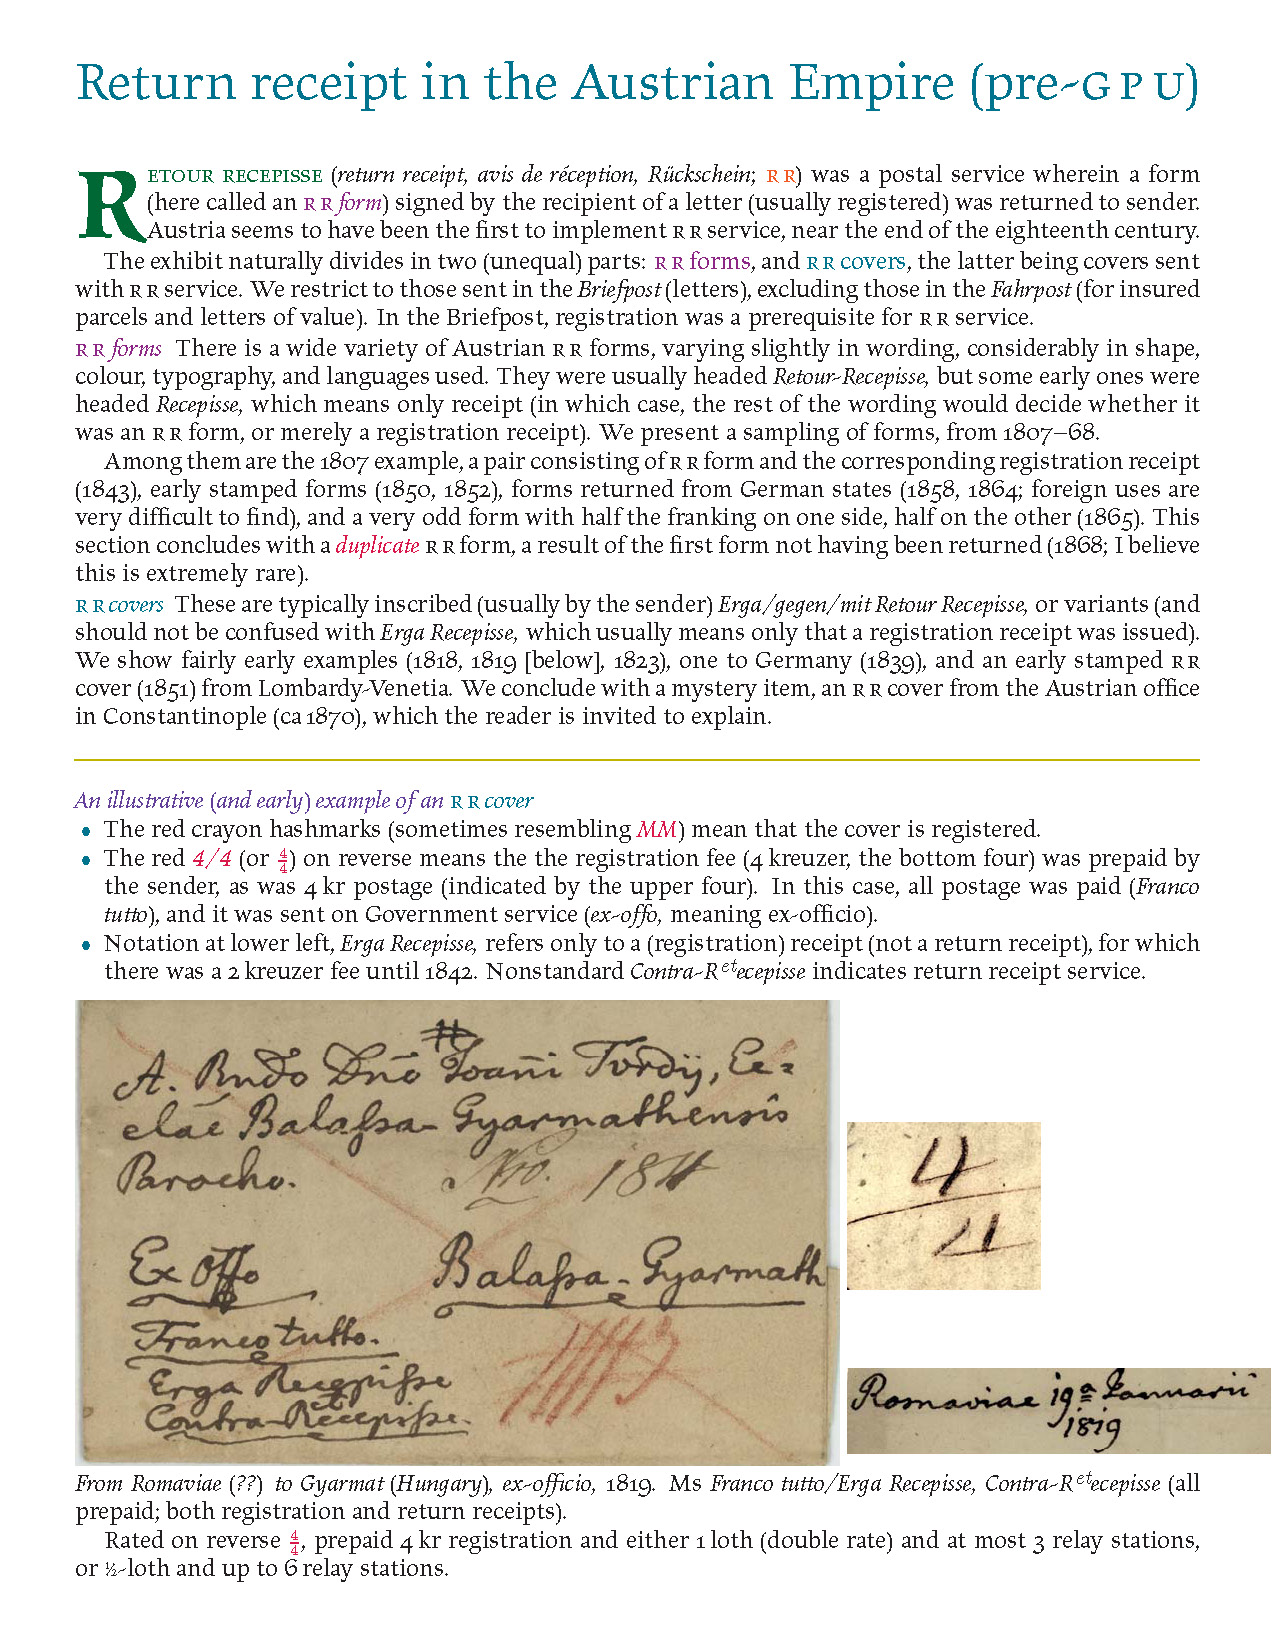 Return receipt in the Austrian Empire (pre-GPU)
RETOUR RECEPISSE (return receipt, avis de réception, Rückschein; RR) was a postal service wherein a form
(here called an RR form) signed by the recipient of a letter (usually registered) was returned to sender.
Austria seems to have been the first to implement RR service, near the end of the eighteenth century.
The exhibit naturally divides in two (unequal) parts: RR forms, and RR covers, the latter being covers sent
with RR service. We restrict to those sent in the Briefpost (letters), excluding those in the Fahrpost (for insured
parcels and letters of value). In the Briefpost, registration was a prerequisite for RR service.
RR forms There is a wide variety of Austrian RR forms, varying slightly in wording, considerably in shape,
colour, typography, and languages used. They were usually headed Retour-Recepisse, but some early ones were
headed Recepisse, which means only receipt (in which case, the rest of the wording would decide whether it
was an RR form, or merely a registration receipt). We present a sampling of forms, from 1807–68.
Among them are the 1807 example, a pair consisting of RR form and the corresponding registration receipt
(1843), early stamped forms (1850, 1852), forms returned from German states (1858, 1864; foreign uses are
very difficult to find), and a very odd form with half the franking on one side, half on the other (1865). This
section concludes with a duplicate RR form, a result of the first form not having been returned (1868; I believe
this is extremely rare).
RR covers These are typically inscribed (usually by the sender) Erga/gegen/mit Retour Recepisse, or variants (and
should not be confused with Erga Recepisse, which usually means only that a registration receipt was issued).
We show fairly early examples (1818, 1819 [below], 1823), one to Germany (1839), and an early stamped RR
cover (1851) from Lombardy-Venetia. We conclude with a mystery item, an RR cover from the Austrian office
in Constantinople (ca 1870), which the reader is invited to explain.
An illustrative (and early) example of an RR cover
• The red crayon hashmarks (sometimes resembling MM) mean that the cover is registered.
• The red 4/4 (or 4/4) on reverse means the the registration fee (4 kreuzer, the bottom four) was prepaid by
the sender, as was 4 kr postage (indicated by the upper four). In this case, all postage was paid (Franco
tutto), and it was sent on Government service (ex-offo, meaning ex-officio).
• Notation at lower left, Erga Recepisse, refers only to a (registration) receipt (not a return receipt), for which
there was a 2 kreuzer fee until 1842. Nonstandard Contra-Retecepisse indicates return receipt service.
A. Rndo Dno Joani Tordij, Ec=
clae Balassa-Gyarmathensis
Parocho.
Nro. 184
Ex offo
Balassa-Gyarmath
Franco tutto.
Erga Recepisse
Contra-Retecepisse.
4
4
Romaviae 19a Januarii
1819
From Romaviae (??) to Gyarmat (Hungary), ex-officio, 1819. Ms Franco tutto/Erga Recepisse, Contra-Retecepisse (all
prepaid; both registration and return receipts).
Rated on reverse 4/4, prepaid 4 kr registration and either 1 loth (double rate) and at most 3 relay stations,
or ½-loth and up to 6 relay stations.